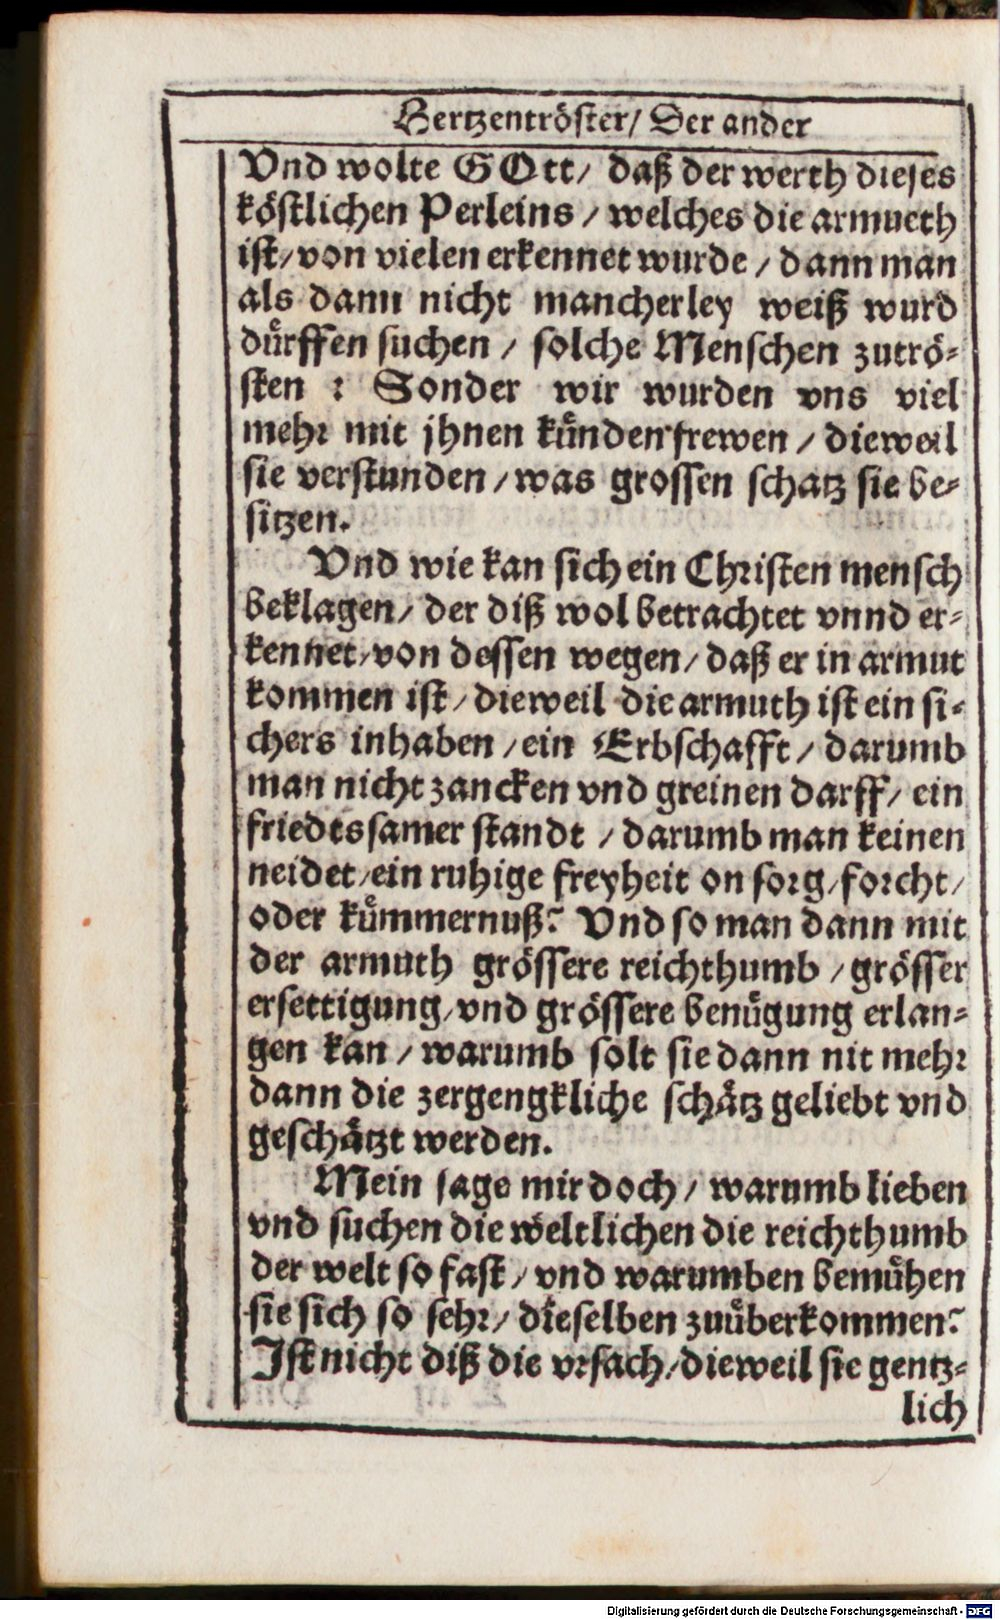 Hertzentröster/ Der ander
Vnd wolte GOtt/ daß der werth dieses
köstlichen Perleins / welches die armueth
ist/ von vielen erkennet wurde / dann man
als dann nicht mancherley weiß wurd
dürffen suchen / solche Menschen zutrö-
sten : Sonder wir wurden vns viel
mehr mit jhnen künden frewen / dieweil
sie verstunden / was grossen schatz sie be-
sitzen.
Vnd wie kan sich ein Christen mensch
beklagen/ der diß wol betrachtet vnnd er-
kennet/ von dessen wegen/ daß er in armut
kommen ist / dieweil die armuth ist ein si-
chers inhaben / ein Erbschafft / darumb
man nicht zancken vnd greinen darff/ ein
friedtssamer standt / darumb man keinen
neidet/ ein ruhige freyheit on sorg/ forcht/
oder kümmernuß? Vnd so man dann mit
der armuth grössere reichthumb / grösser
ersettigung/ vnd grössere benügung erlan-
gen kan / warumb solt sie dann nit mehr
dann die zergengkliche schätz geliebt vnd
geschätzt werden.
Mein sage mir doch / warumb lieben
vnd suchen die weltlichen die reichthumb
der welt so fast / vnd warumben bemühen
sie sich so sehr/ dieselben zuüberkommen?
Ist nicht diß die vrsach/ dieweil sie gentz-
lich
Digitalisierung gefördert durch die Deutsche Forschungsgemeinschaft - DFG